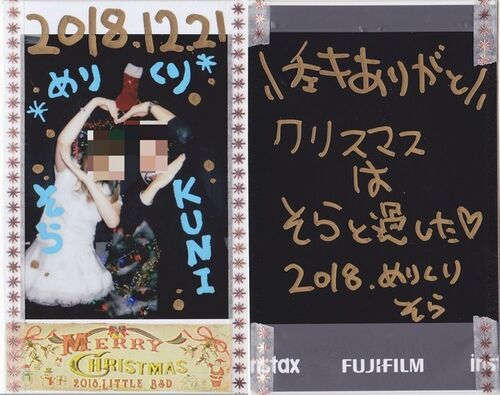 2018.12.21
めりくり*
*
そら
KUNI
MERRY
CHRISTMAS
2018.LITTLE BSD
\\チェキありがと//
クリスマス
は
そらと過した♡
2018.めりくり
そら
instax
FUJIFILM
ins